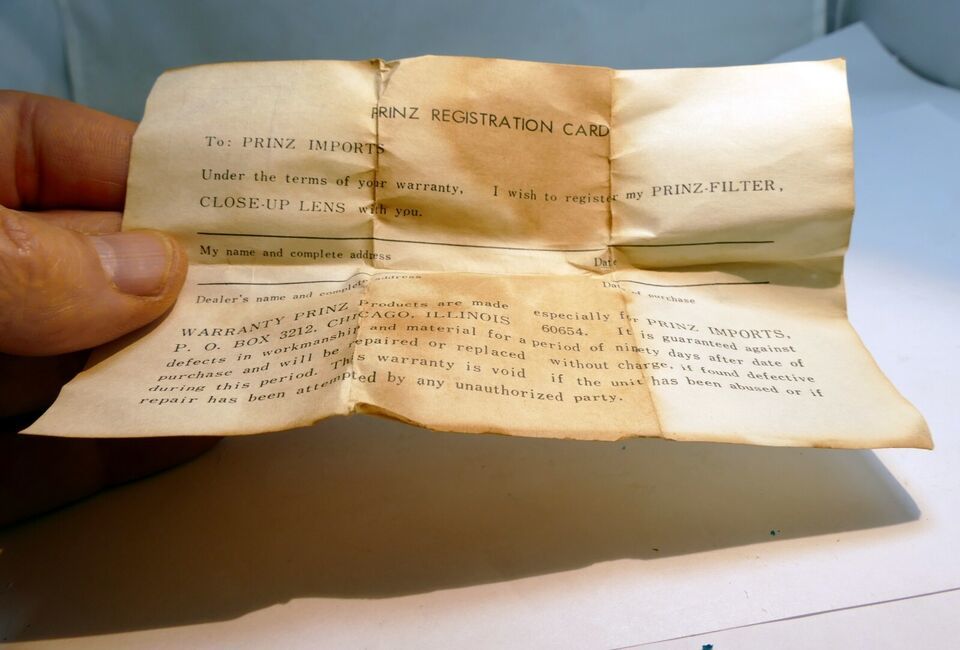 PRINZ REGISTRATION CARD
To: PRINZ IMPORTS
Under the terms of your warranty, I wish to register my PRINZ-FILTER,
CLOSE-UP LENS with you.
My name and complete address Date
Dealer's name and complete address Date of purchase
WARRANTY PRINZ Products are made especially for PRINZ IMPORTS,
P. O. BOX 3212, CHICAGO, ILLINOIS 60654. It is guaranteed against
defects in workmanship and material for a period of ninety days after date of
purchase and will be repaired or replaced without charge, if found defective
during this period. This warranty is void if the unit has been abused or if
repair has been attempted by any unauthorized party.